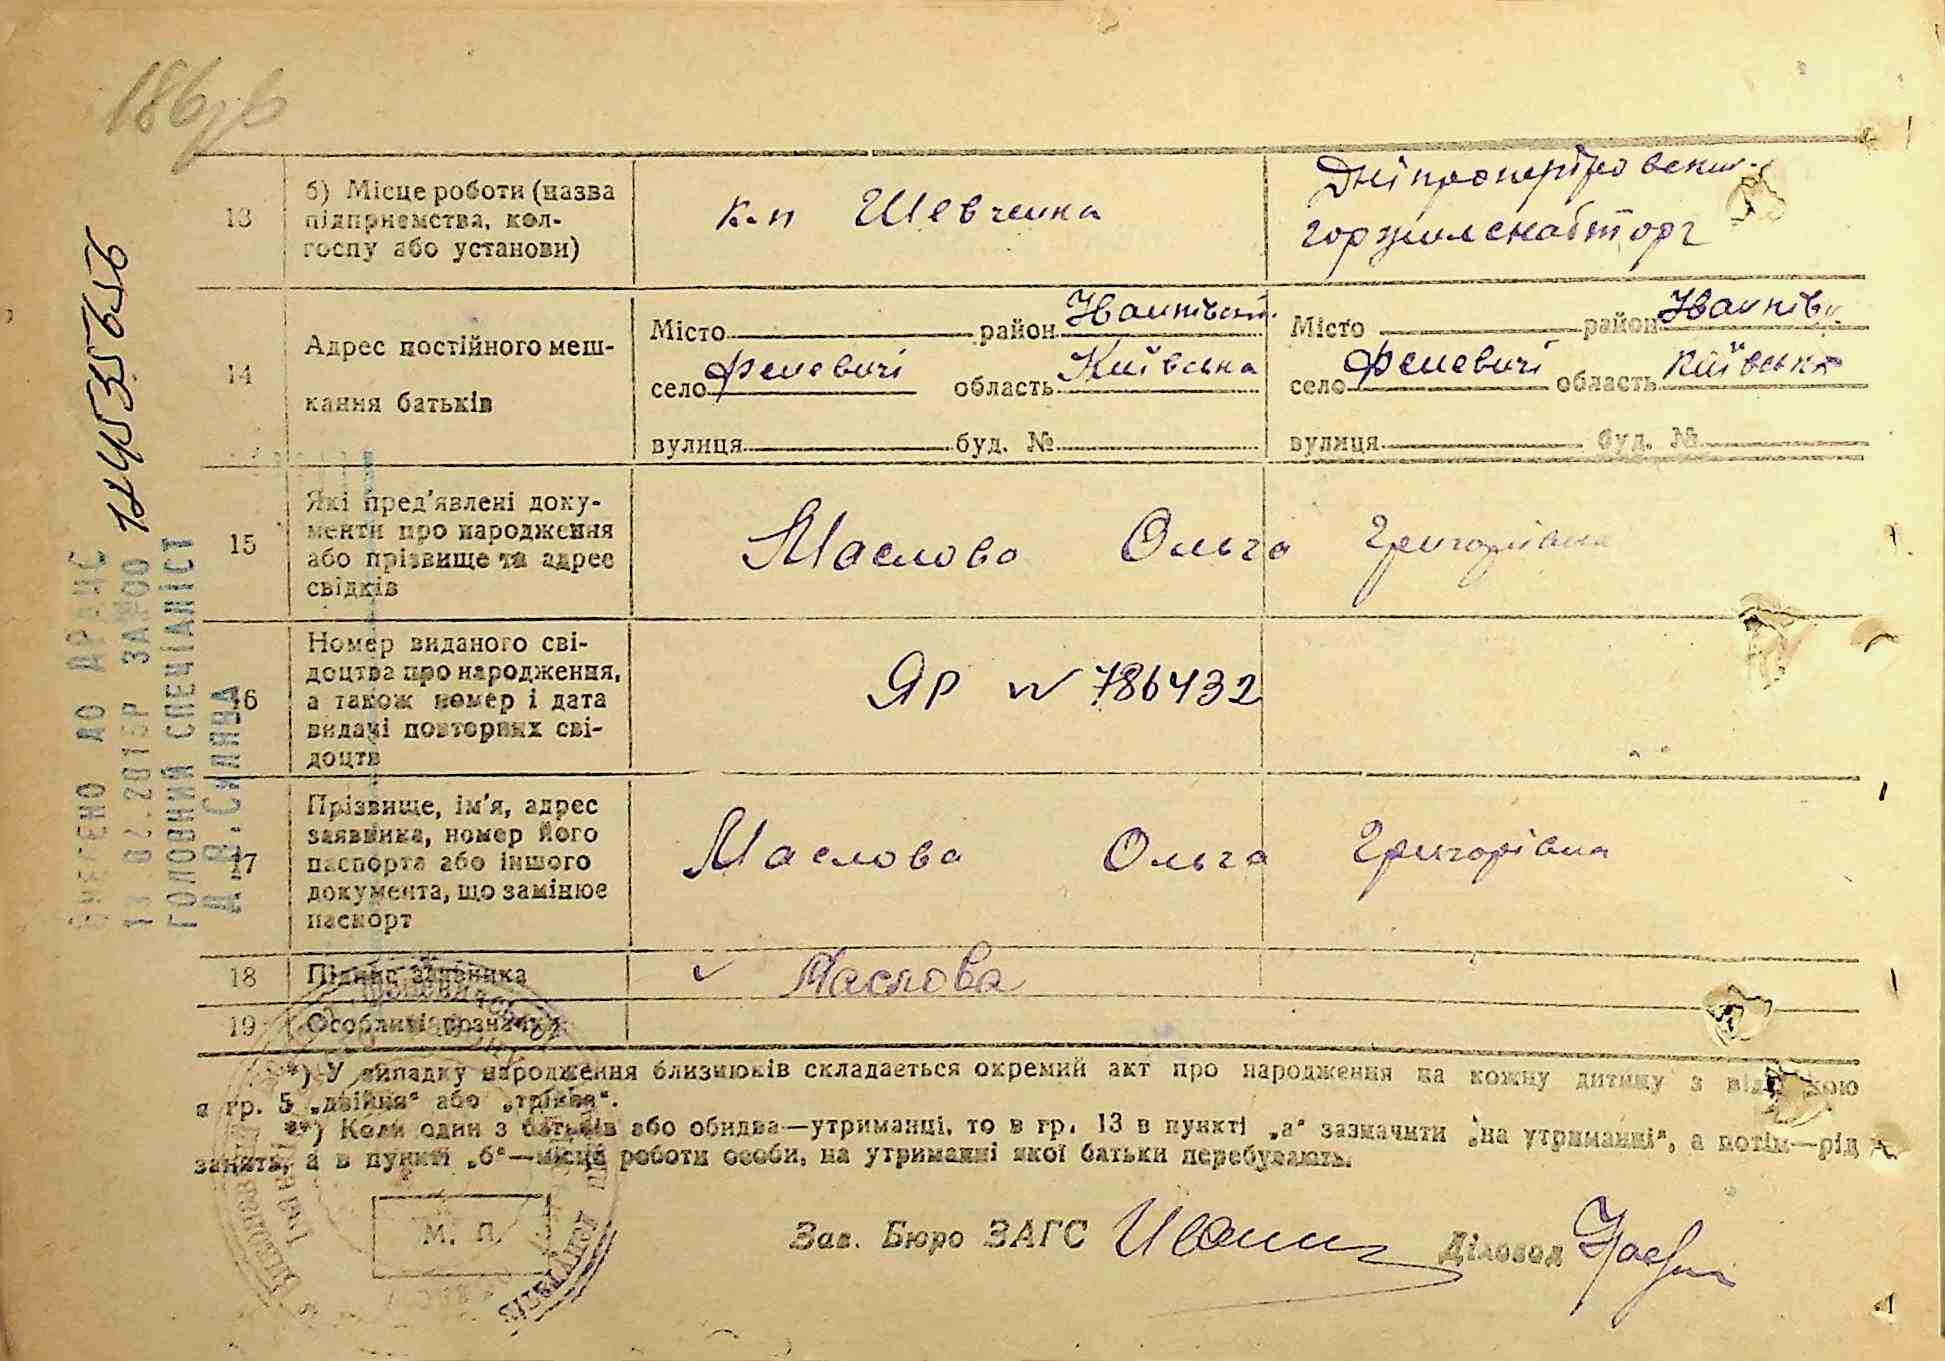 186зв
13
б) Місце роботи (назва
підприємства, кол-
госпу або установи)
к-п Шевченка
Дніпропетровськ
горжилснабторг
14
Адрес постійного меш-
кання батьків
Місто район Іванківськ.
село Феневичі область Київська
вулиця буд. №
Місто район Іванків.
село Феневичі область Київська
вулиця буд. №
15
Які пред'явлені доку-
менти про народження
або прізвище та адрес
свідків
Маслова Ольга Григорівна
16
Номер виданого сві-
доцтва про народження,
а також номер і дата
видачі повторних сві-
доцтв
ЯР № 786432
17
Прізвище, ім'я, адрес
заявника, номер його
паспорта або іншого
документа, що замінює
паспорт
Маслова Ольга Григорівна
18
Підпис заявника
Маслова
19
Особливі позначки
*) У випадку народження близнюків складається окремий акт про народження на кожну дитину з відміткою
в гр. 5 „двійня“ або „трійня“.
**) Коли один з батьків або обидва—утриманці, то в гр. 13 в пункті „а“ зазначити „на утриманні“, а потім—рід
занять, а в пункті „б“—місце роботи особи, на утриманні якої батьки перебувають.
М. П.
Зав. Бюро ЗАГС
Діловод
ВНЕСЕНО ДО ДРАЦС
02.2015Р ЗА№00
ГОЛОВНИЙ СПЕЦІАЛІСТ
Д.В.СИЛЯВА